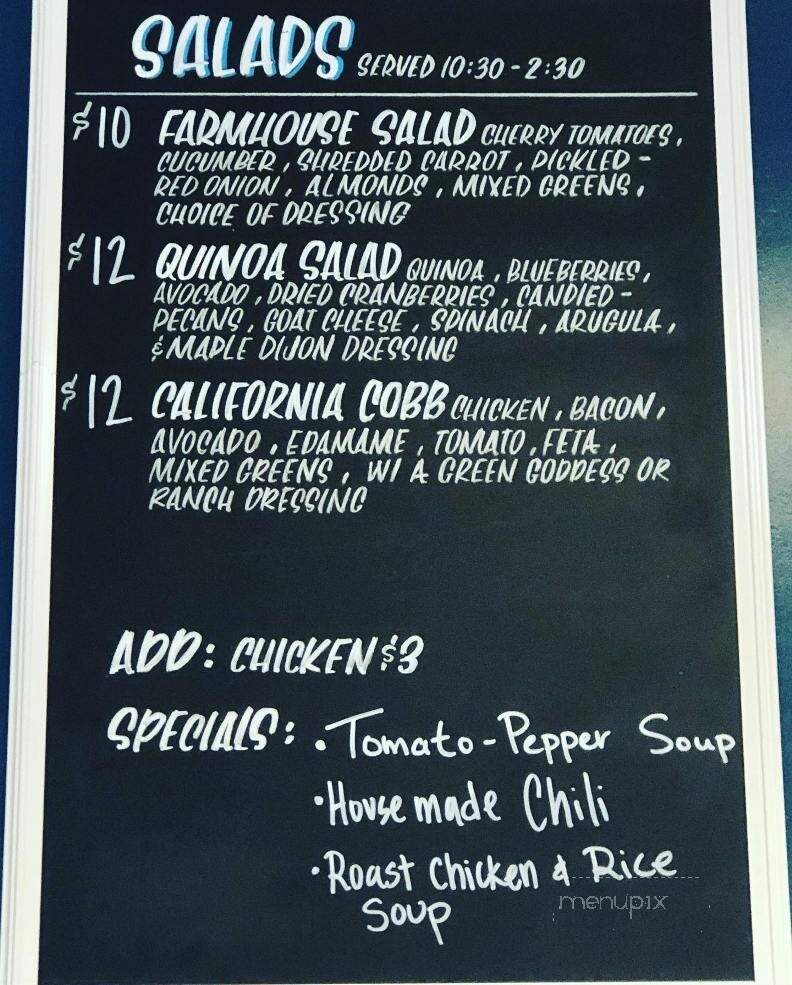 SALADS SERVED 10:30 - 2:30
$10 FARMHOUSE SALAD CHERRY TOMATOES,
CUCUMBER, SHREDDED CARROT, PICKLED -
RED ONION, ALMONDS, MIXED GREENS,
CHOICE OF DRESSING
$12 QUINOA SALAD QUINOA, BLUEBERRIES,
AVOCADO, DRIED CRANBERRIES, CANDIED -
PECANS, GOAT CHEESE, SPINACH, ARUGULA,
& MAPLE DIJON DRESSING
$12 CALIFORNIA COBB CHICKEN, BACON,
AVOCADO, EDAMAME, TOMATO, FETA,
MIXED GREENS, W/ A GREEN GODDESS OR
RANCH DRESSING
ADD: CHICKEN $3
SPECIALS: • Tomato - Pepper Soup
• House made Chili
• Roast Chicken & Rice
Soup
menupix